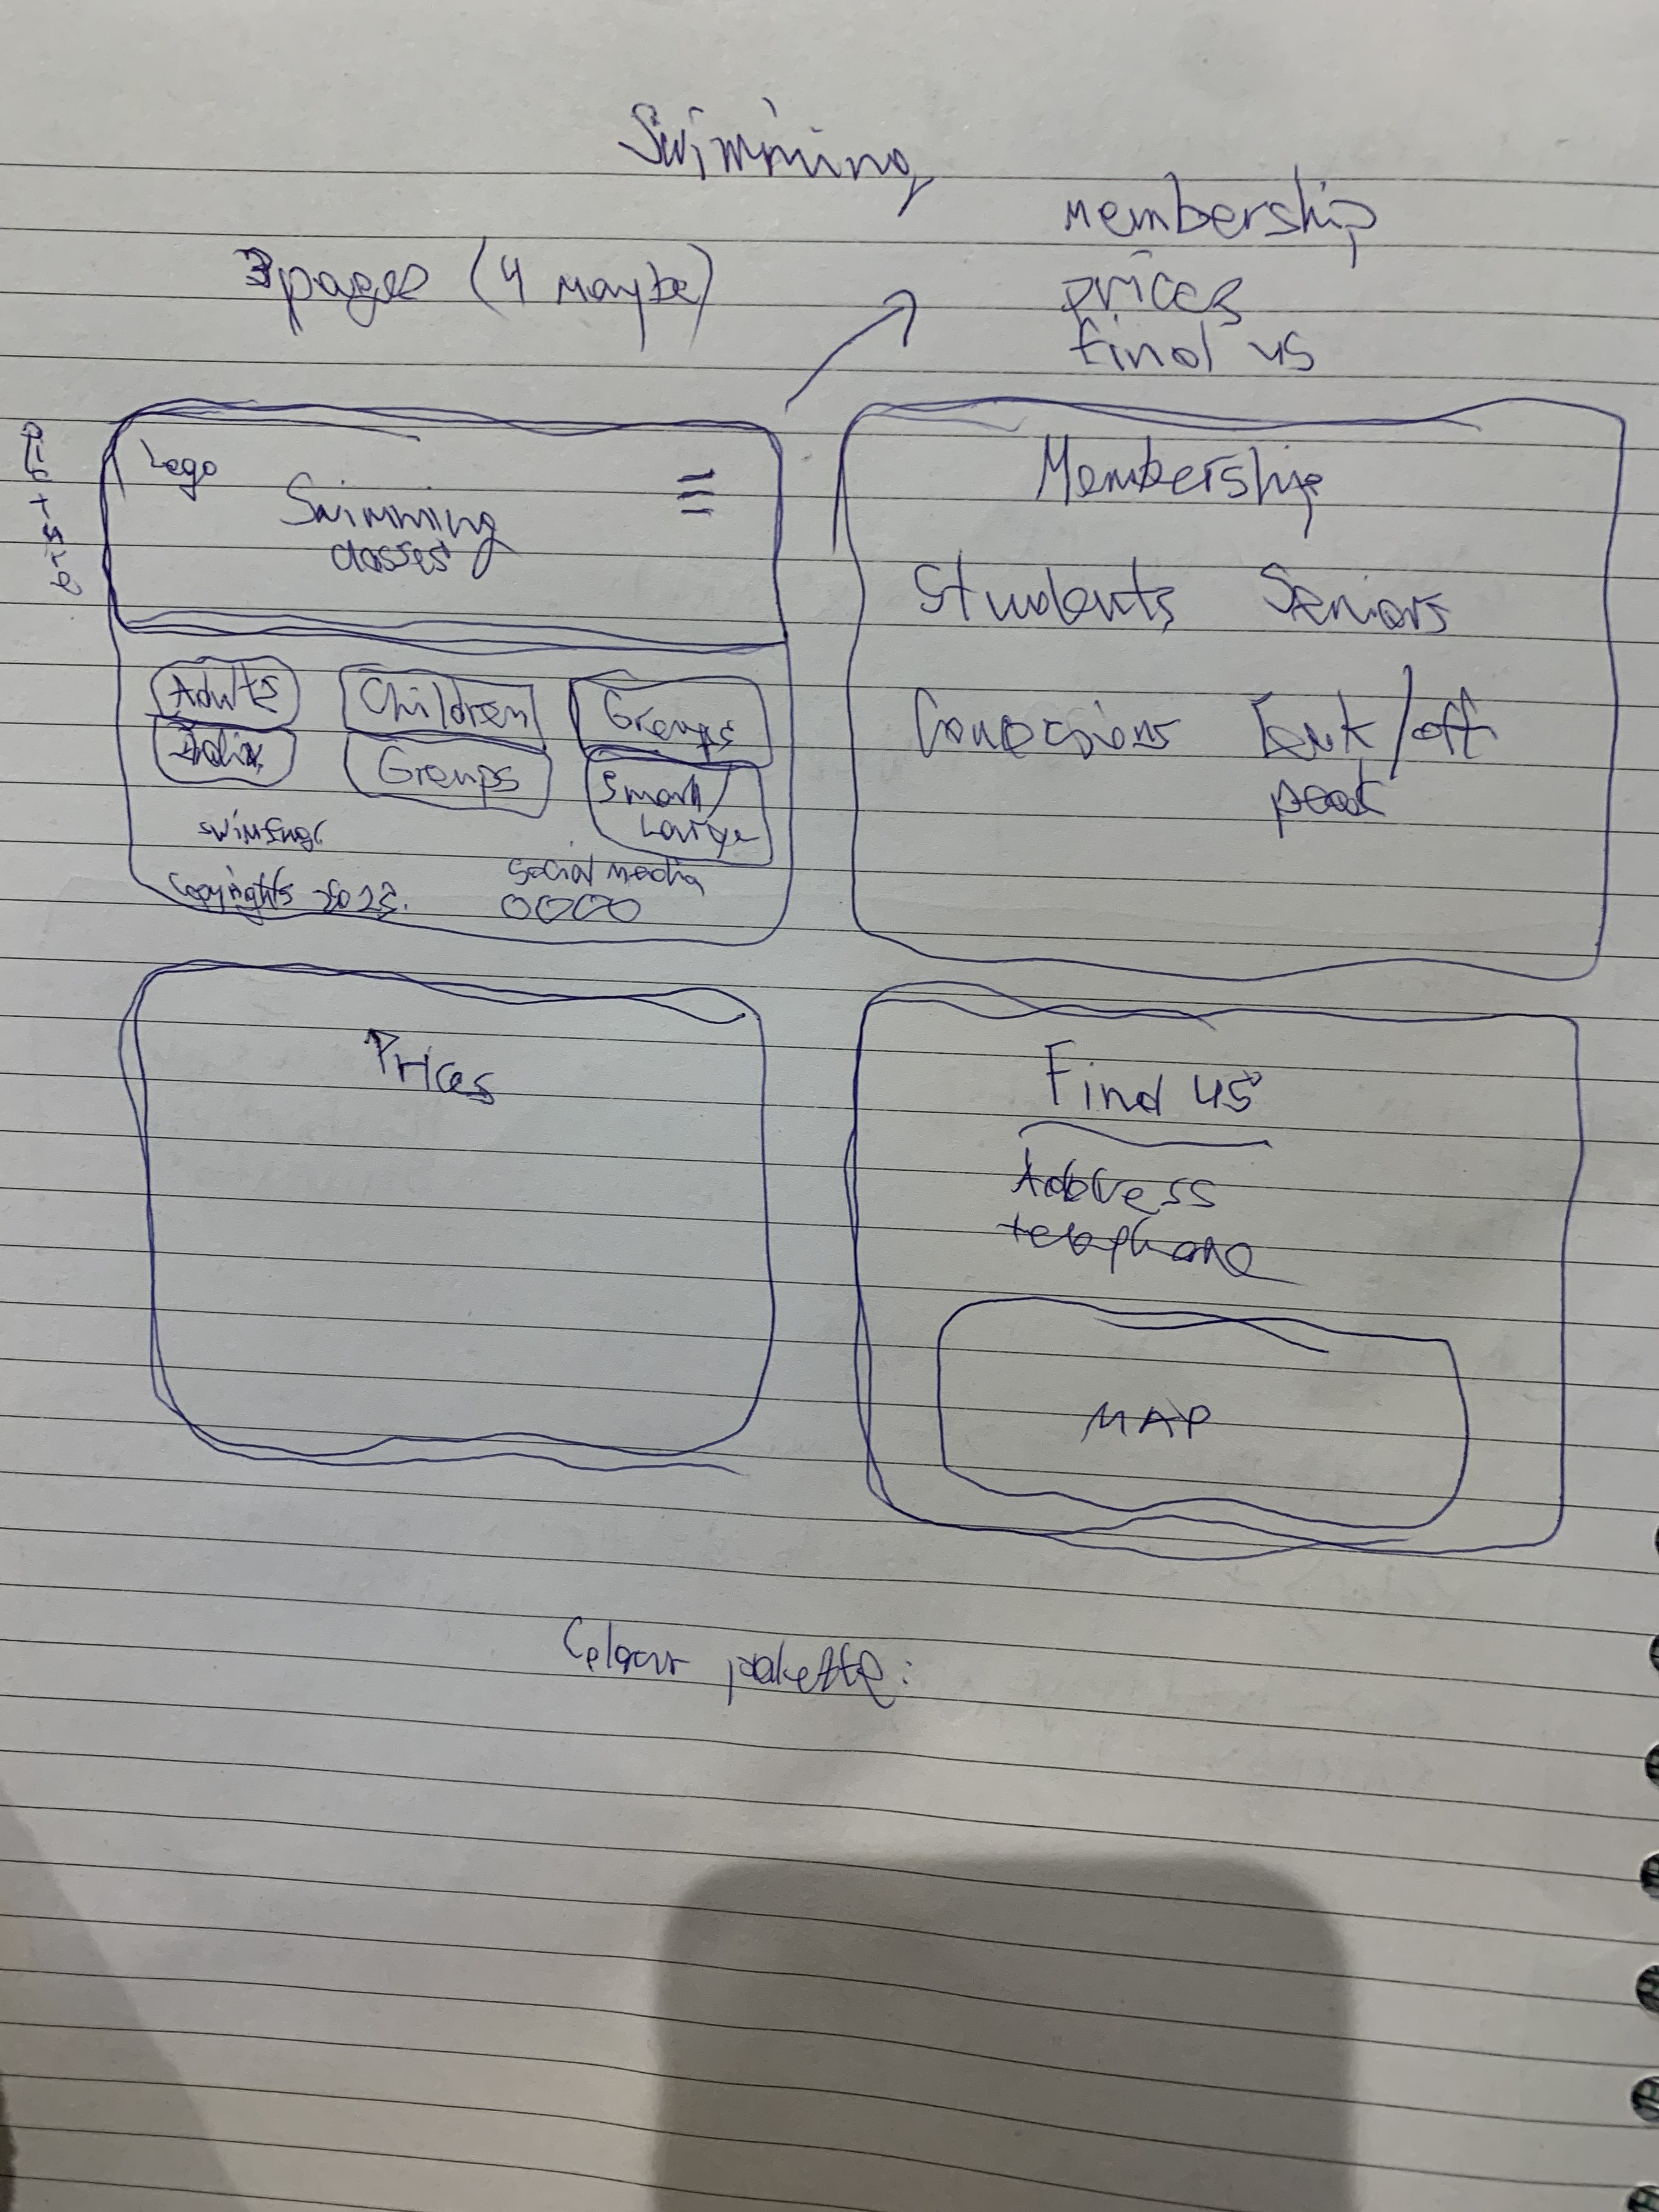 Swimming
3pages (4 maybe)
membership
prices
find us
Picture
Logo
Swimming
classes
Adults
Children
Groups
Groups
Small/
Large
Copyrights
social media
Membership
Students Seniors
/off
peak
Prices
Find us
Address
telephone
MAP
Colour palette: